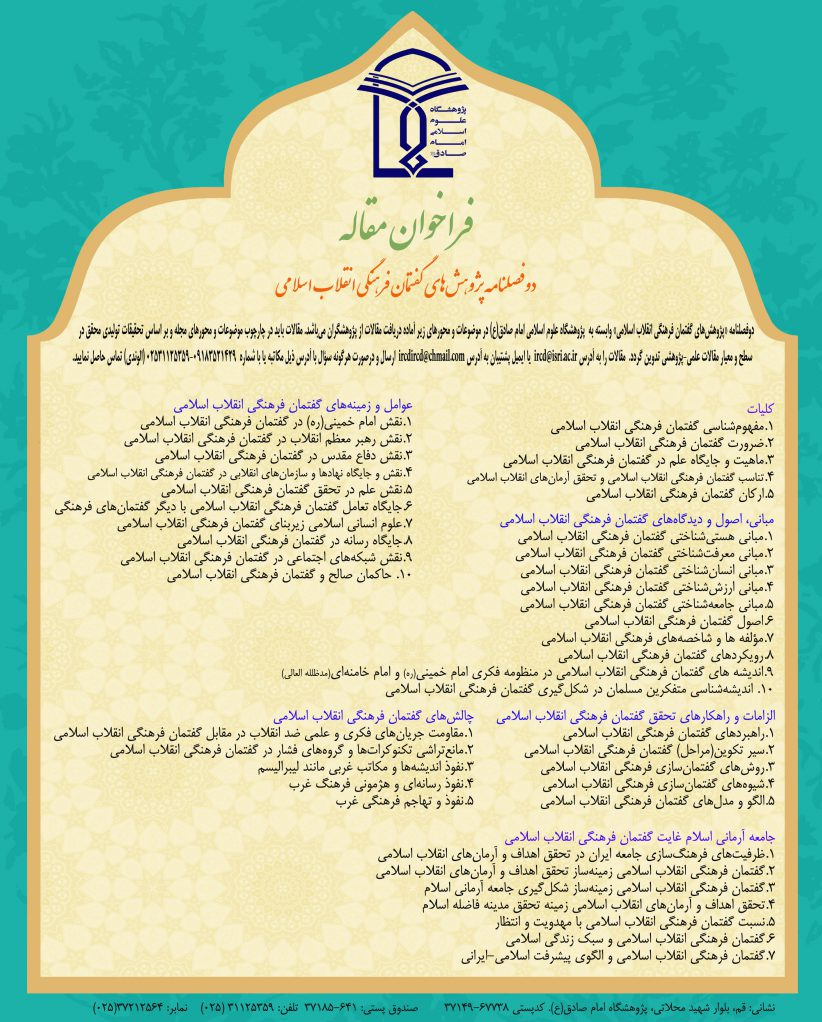 پژوهشگاه
علوم
اسلامی
امام
صادق(ع)
فراخوان مقاله
دو فصلنامه پژوهش‌های گفتمان فرهنگی انقلاب اسلامی
دوفصلنامه «پژوهش‌های گفتمان فرهنگی انقلاب اسلامی» وابسته به پژوهشگاه علوم اسلامی امام صادق(ع) در موضوعات و محورهای زیر آماده دریافت مقالات از پژوهشگران می‌باشد. مقالات باید در چارچوب موضوعات و محورهای مجله و بر اساس تحقیقات تولیدی محقق در
سطح و معیار مقالات علمی-پژوهشی تدوین گردد. مقالات را به آدرس ircd@isri.ac.ir یا ایمیل پشتیبان به آدرس ircdircd@chmail.com ارسال و درصورت هرگونه سؤال با آدرس ذیل مکاتبه یا با شماره ۰۹۱۸۳۵۲۱۴۲۹-۰۲۵۳۱۱۲۵۳۵۹ (الوندی) تماس حاصل نمایید.
کلیات
۱.مفهوم‌شناسی گفتمان فرهنگی انقلاب اسلامی
۲.ضرورت گفتمان فرهنگی انقلاب اسلامی
۳.ماهیت و جایگاه علم در گفتمان فرهنگی انقلاب اسلامی
۴.تناسب گفتمان فرهنگی انقلاب اسلامی و تحقق آرمان‌های انقلاب اسلامی
۵.ارکان گفتمان فرهنگی انقلاب اسلامی
عوامل و زمینه‌های گفتمان فرهنگی انقلاب اسلامی
۱.نقش امام خمینی(ره) در گفتمان فرهنگی انقلاب اسلامی
۲.نقش رهبر معظم انقلاب در گفتمان فرهنگی انقلاب اسلامی
۳.نقش دفاع مقدس در گفتمان فرهنگی انقلاب اسلامی
۴.نقش و جایگاه نهادها و سازمان‌های انقلابی در گفتمان فرهنگی انقلاب اسلامی
۵.نقش علم در تحقق گفتمان فرهنگی انقلاب اسلامی
۶.جایگاه تعامل گفتمان فرهنگی انقلاب اسلامی با دیگر گفتمان‌های فرهنگی
۷.علوم انسانی اسلامی زیربنای گفتمان فرهنگی انقلاب اسلامی
۸.جایگاه رسانه در گفتمان فرهنگی انقلاب اسلامی
۹.نقش شبکه‌های اجتماعی در گفتمان فرهنگی انقلاب اسلامی
۱۰. حاکمان صالح و گفتمان فرهنگی انقلاب اسلامی
مبانی، اصول و دیدگاه‌های گفتمان فرهنگی انقلاب اسلامی
۱.مبانی هستی‌شناختی گفتمان فرهنگی انقلاب اسلامی
۲.مبانی معرفت‌شناختی گفتمان فرهنگی انقلاب اسلامی
۳.مبانی انسان‌شناختی گفتمان فرهنگی انقلاب اسلامی
۴.مبانی ارزش‌شناختی گفتمان فرهنگی انقلاب اسلامی
۵.مبانی جامعه‌شناختی گفتمان فرهنگی انقلاب اسلامی
۶.اصول گفتمان فرهنگی انقلاب اسلامی
۷.مؤلفه ها و شاخصه‌های فرهنگی انقلاب اسلامی
۸.رویکردهای گفتمان فرهنگی انقلاب اسلامی
۹.اندیشه های گفتمان فرهنگی انقلاب اسلامی در منظومه فکری امام خمینی(ره) و امام خامنه‌ای(مدظلله العالی)
۱۰. اندیشه‌شناسی متفکرین مسلمان در شکل‌گیری گفتمان فرهنگی انقلاب اسلامی
الزامات و راهکارهای تحقق گفتمان فرهنگی انقلاب اسلامی
۱.راهبردهای گفتمان فرهنگی انقلاب اسلامی
۲.سیر تکوین(مراحل) گفتمان فرهنگی انقلاب اسلامی
۳.روش‌های گفتمان‌سازی فرهنگی انقلاب اسلامی
۴.شیوه‌های گفتمان‌سازی فرهنگی انقلاب اسلامی
۵.الگو و مدل‌های گفتمان فرهنگی انقلاب اسلامی
چالش‌های گفتمان فرهنگی انقلاب اسلامی
۱.مقاومت جریان‌های فکری و علمی ضد انقلاب در مقابل گفتمان فرهنگی انقلاب اسلامی
۲.مانع‌تراشی تکنوکرات‌ها و گروه‌های فشار در گفتمان فرهنگی انقلاب اسلامی
۳.نفوذ اندیشه‌ها و مکاتب غربی مانند لیبرالیسم
۴.نفوذ رسانه‌ای و هژمونی فرهنگ غرب
۵.نفوذ و تهاجم فرهنگی غرب
جامعه آرمانی اسلام غایت گفتمان فرهنگی انقلاب اسلامی
۱.ظرفیت‌های فرهنگ‌سازی جامعه ایران در تحقق اهداف و آرمان‌های انقلاب اسلامی
۲.گفتمان فرهنگی انقلاب اسلامی زمینه‌ساز تحقق اهداف و آرمان‌های انقلاب اسلامی
۳.گفتمان فرهنگی انقلاب اسلامی زمینه‌ساز شکل‌گیری جامعه آرمانی اسلام
۴.تحقق اهداف و آرمان‌های انقلاب اسلامی زمینه تحقق مدینه فاضله اسلام
۵.نسبت گفتمان فرهنگی انقلاب اسلامی با مهدویت و انتظار
۶.گفتمان فرهنگی انقلاب اسلامی و سبک زندگی اسلامی
۷.گفتمان فرهنگی انقلاب اسلامی و الگوی پیشرفت اسلامی-ایرانی
نشانی: قم، بلوار شهید محلاتی، پژوهشگاه امام صادق(ع). کدپستی ۶۷۷۳۸-۳۷۱۴۹ صندوق پستی: ۶۴۱-۳۷۱۸۵ تلفن: ۳۱۱۲۵۳۵۹ (۰۲۵) نمابر: ۳۷۲۱۲۵۶۴(۰۲۵)